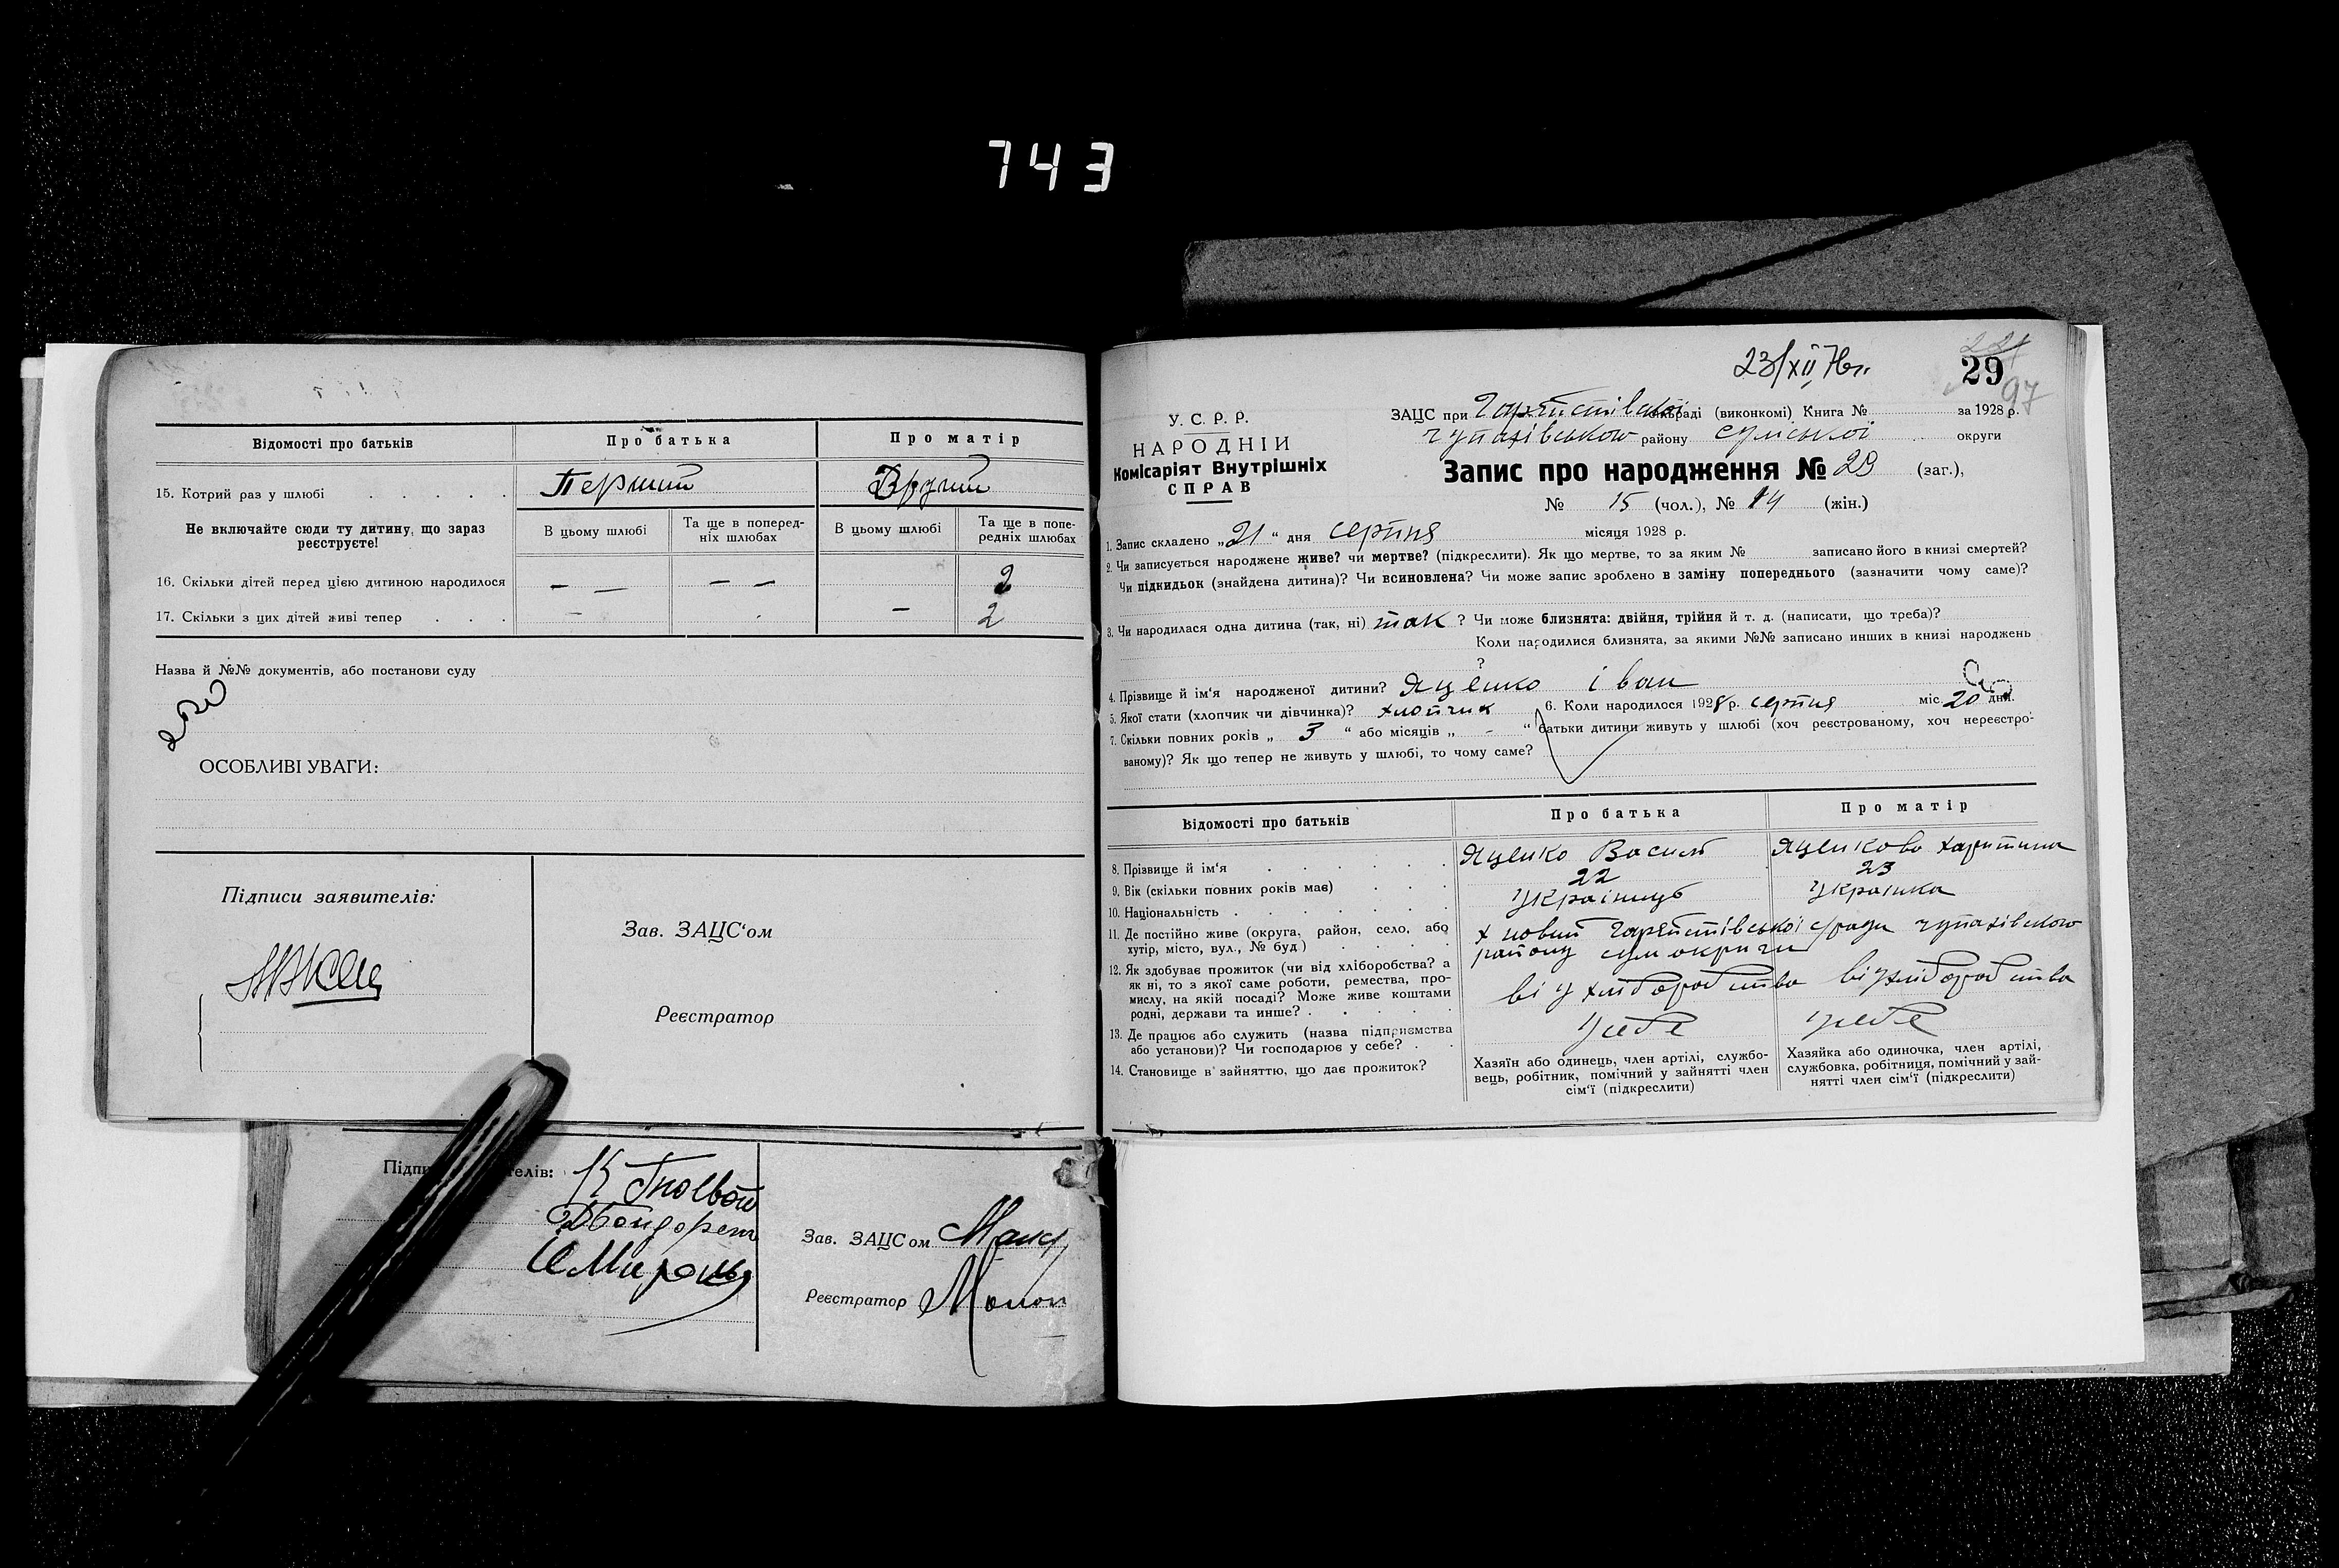 743
Відомості про батьків
Про батька
Про матір
15. Котрий раз у шлюбі
Перший
Другий
Не включайте сюди ту дитину, що зараз реєструєте!
В цьому шлюбі
Та ще в поперед-
ніх шлюбах
В цьому шлюбі
Та ще в попе-
редніх шлюбах
16. Скільки дітей перед цією дитиною народилося
— — — —
2
17. Скільки з цих дітей живі тепер
—
—
2
Назва й №№ документів, або постанови суду
ОСОБЛИВІ УВАГИ:
Підписи заявителів:
Зав. ЗАЦС'ом
Реєстратор
Зав. ЗАЦСом
Реєстратор
23/XII 76 г.
29
97
У. С. Р. Р.
НАРОДНІЙ
Комісаріят Внутрішніх
СПРАВ
ЗАЦС при (виконкомі) Книга № за 1928 р.
Чупахівського району Сумської округи
Запис про народження № 29 (заг.),
№ 15 (чол.), № 14 (жін.)
1. Запис складено „21“ дня серпня місяця 1928 р.
2. Чи записується народжене живе? чи мертве? (підкреслити). Як що мертве, то за яким № записано його в книзі смертей?
Чи підкидьок (знайдена дитина)? Чи всиновлена? Чи може запис зроблено в заміну попереднього (зазначити чому саме)?
3. Чи народилася одна дитина (так, ні) так ? Чи може близнята: двійня, трійня й т. д. (написати, що треба)?
Коли народилися близнята, за якими №№ записано инших в книзі народжень
?
4. Прізвище й ім'я народженої дитини? Яценко Іван
5. Якої стати (хлопчик чи дівчинка)? хлопчик 6. Коли народилося 1928 р. серпня міс. 20 дня.
7. Скільки повних років „ 3 “ або місяців „ - “ батьки дитини живуть у шлюбі (хоч реєстрованому, хоч нереєстро-
ваному)? Як що тепер не живуть у шлюбі, то чому саме?
Відомості про батьків
Про батька
Про матір
8. Прізвище й ім'я
Яценко Василь
Яценкова Харитина
9. Вік (скільки повних років має)
22
23
10. Національність
Українець
Українка
11. Де постійно живе (округа, район, село, або
хутір, місто, вул., № буд)
х новий с/ради чупахівського
району сум округи
12. Як здобуває прожиток (чи від хліборобства? а
як ні, то з якої саме роботи, ремества, про-
мислу, на якій посаді? Може живе коштами
родні, держави та инше?
від хліборобства
від хліборобства
13. Де працює або служить (назва підприємства
або установи)? Чи господарює у себе?
У себе
У себе
14. Становище в зайняттю, що дає прожиток?
Хазяїн або одинець, член артілі, службо-
вець, робітник, помічний у зайнятті член
сім'ї (підкреслити)
Хазяйка або одиночка, член артілі,
службовка, робітниця, помічний у зай-
нятті член сім'ї (підкреслити)